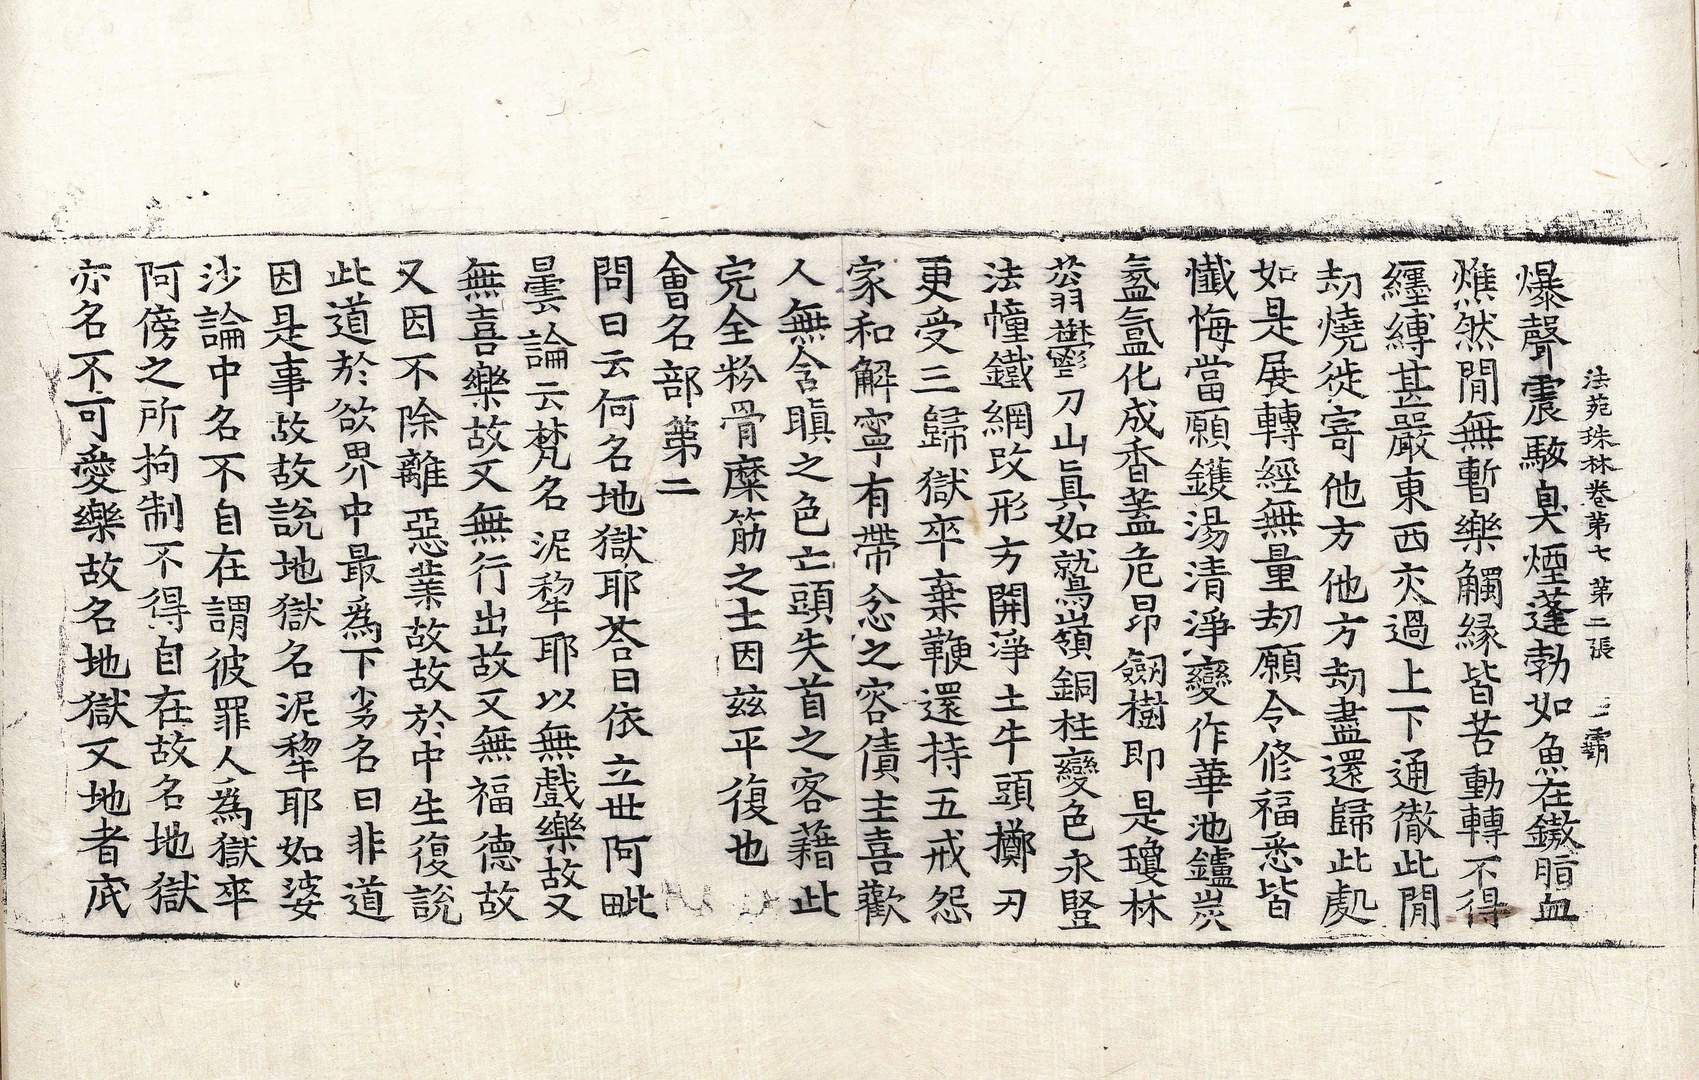 法苑珠林卷第七 第二張 霸
爆聲震駭臭煙蓬勃如魚在鏾脂血
燋然閒無暫樂觸緣皆苦動轉不得
纏縛甚嚴東西交過上下通徹此閒
劫燒徙寄他方他方劫盡還歸此處
如是展轉經無量劫願令修福悉皆
懺悔當願鑊湯清淨變作華池鑪炭
氤氳化成香蓋危昂劒樹即是瓊林
蓊鬱刀山眞如鷲嶺銅柱變色永豎
法幢鐵網改形方開淨土牛頭擲刃
更受三歸獄卒棄鞭還持五戒怨
家和解寧有帶忿之容債主喜歡
人無含瞋之色亡頭失首之客藉此
完全粉骨糜筋之士因茲平復也
會名部第二
問曰云何名地獄耶荅曰依立世阿毗
曇論云梵名泥犂耶以無戲樂故又
無喜樂故又無行出故又無福德故
又因不除離惡業故故於中生復說
此道於欲界中最爲下劣名曰非道
因是事故故說地獄名泥犂耶如婆
沙論中名不自在謂彼罪人爲獄卒
阿傍之所拘制不得自在故名地獄
亦名不可愛樂故名地獄又地者底